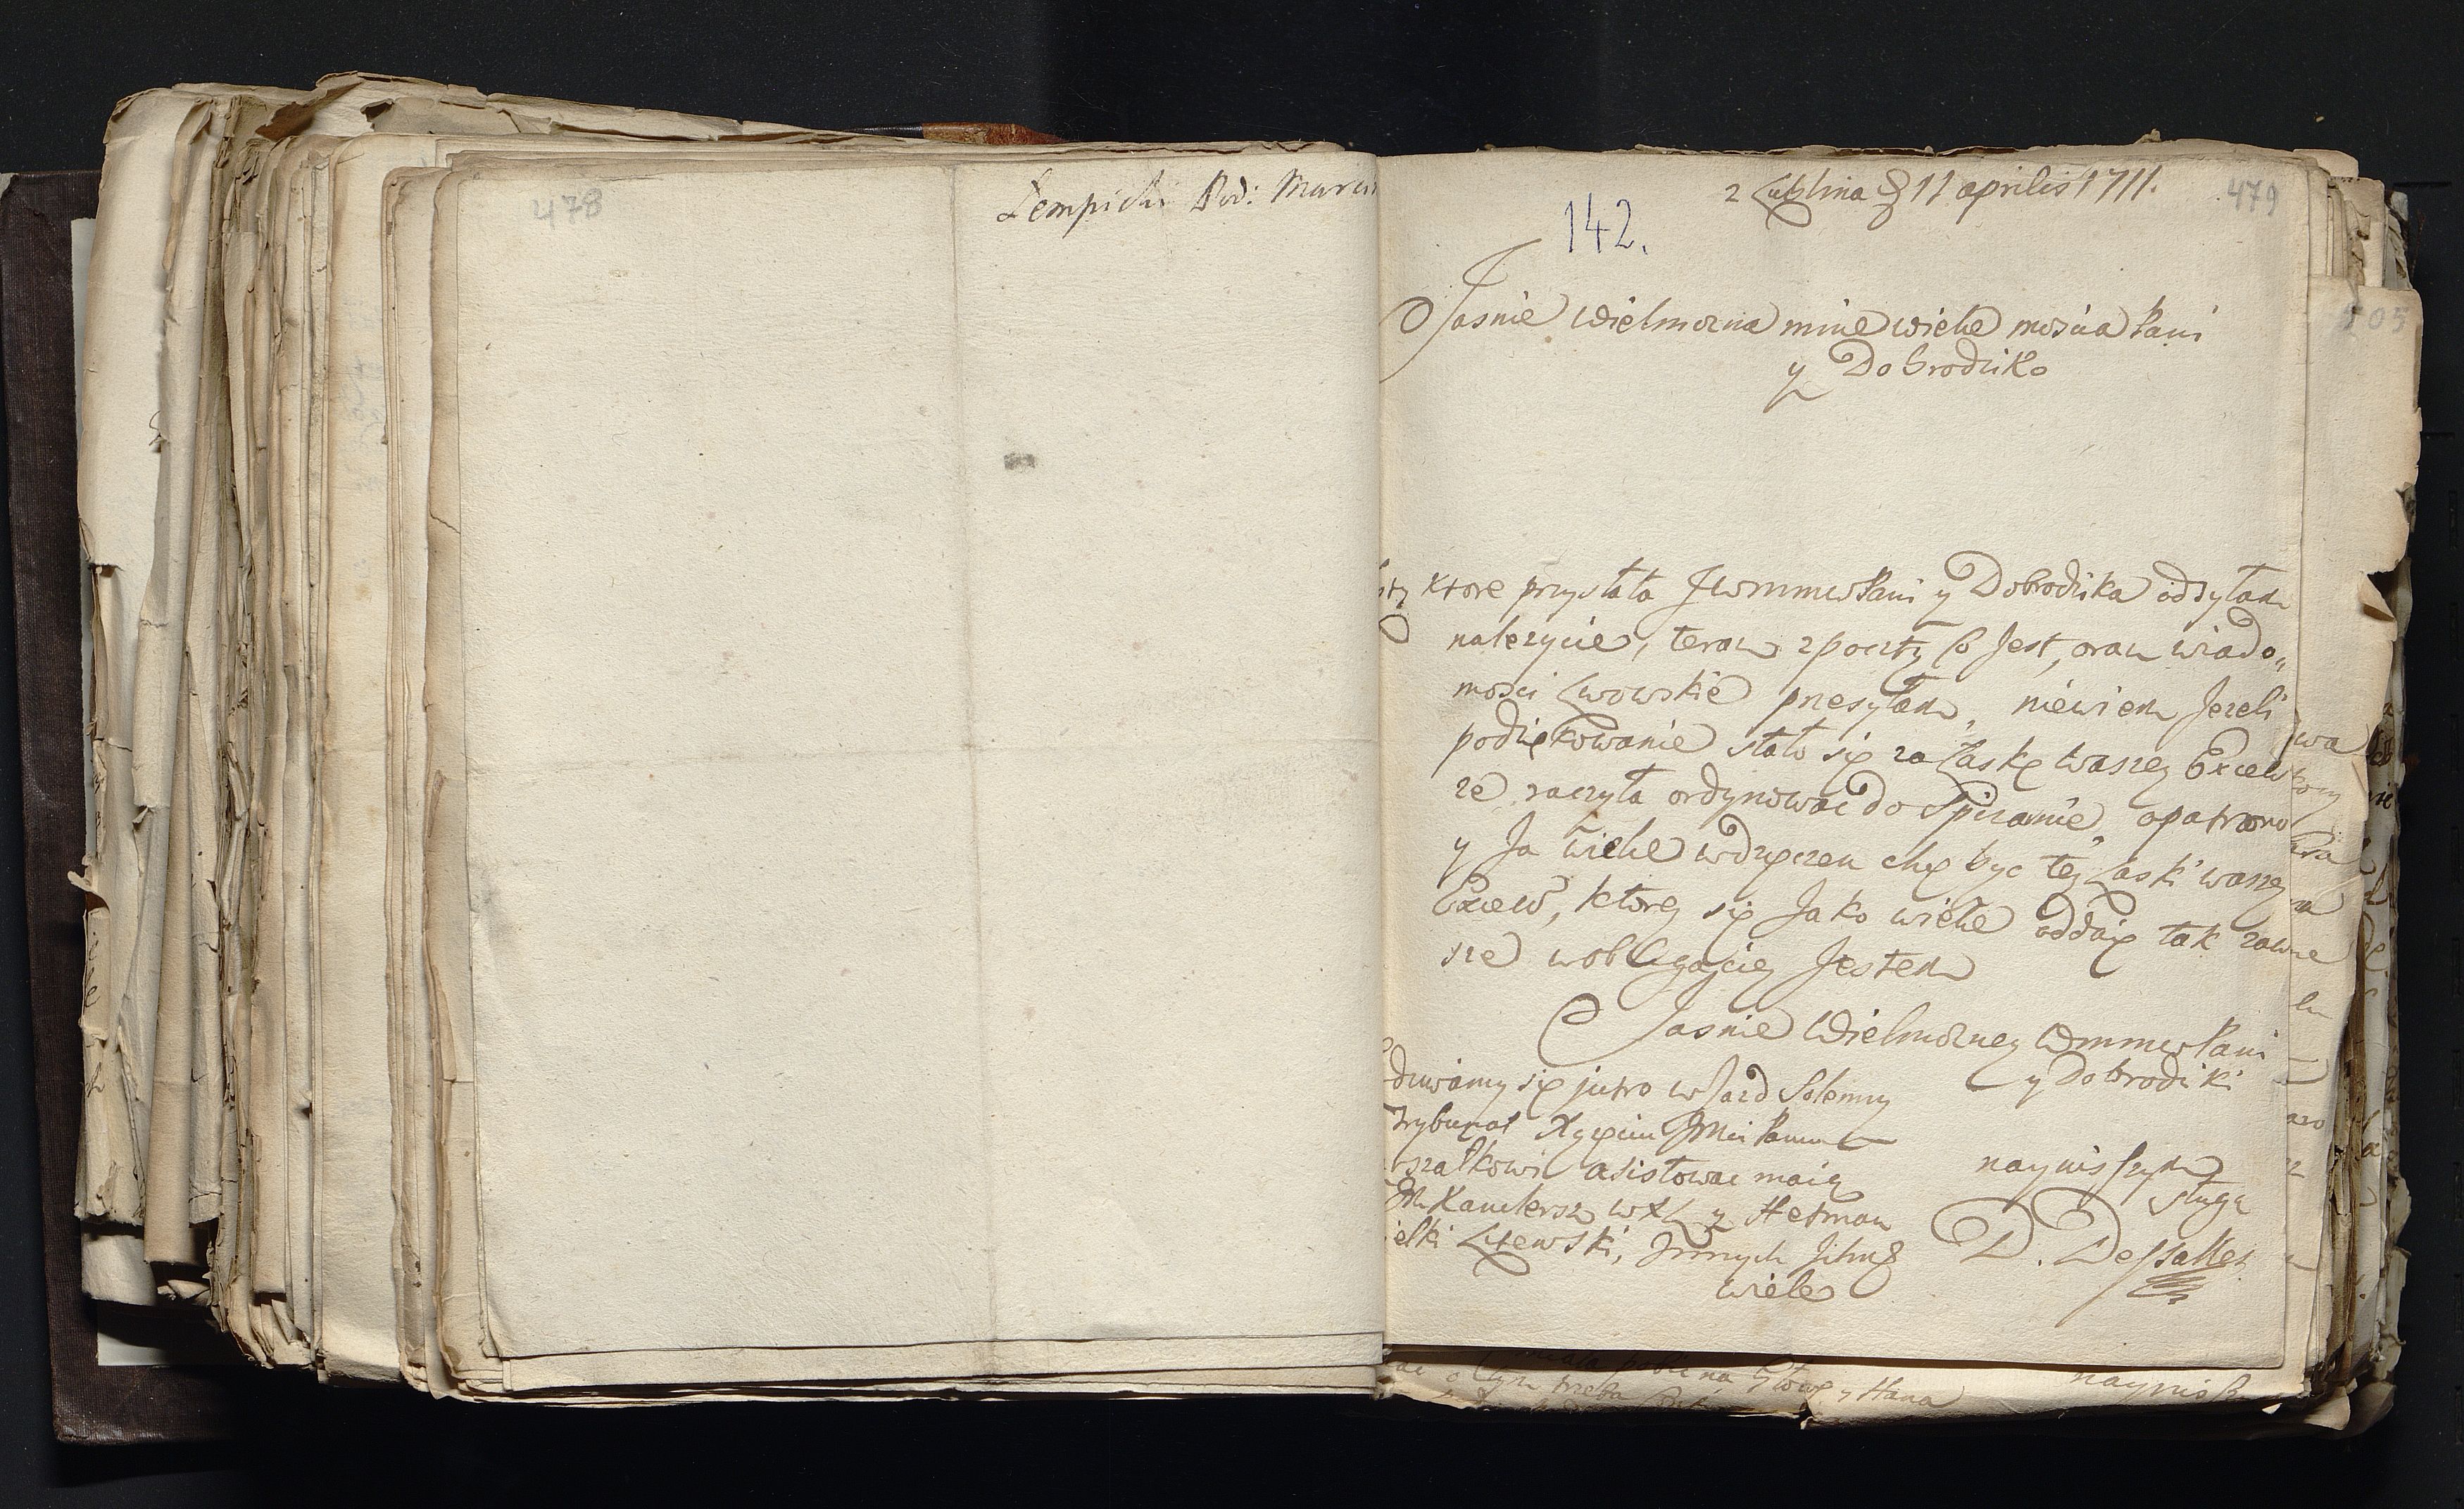 478
Łempicki Pod: Marcin
z Lublina D 11 aprilis 1711.
479
142.
Jasnie Wielmozna mnie wielce mosćia Pani
y Dobrodziko
505
Ktore przysłała JWmmwPani y Dobrodzika odsyłam
nalezycie, teraz z poczty co Jest, oraz wiado„
mosci Lwowskie przesyłam, niewiem Jezeli
podziękowanie stało się za Łaskę waszey Excell
ze raczyła ordynowac do Spizarnie, opatrzono
y Ja wielce wdzęczen chcę byc tey Łaski waszey
Excell, ktorey się Jako wielce oddaię tak zaw
sze w obligacyey Jestem
Jasnie Wielmozney WmmwPani
y Dobrodziki
dziwamy się jutro wJazd Solenny
Trybunał Xyęciu JMci Panu
szałkowi asistowac maią
JM Kanclerz WXL y Hetman
ielki Litewski, Jnnych Jchm
wiele
nayniszszym
sługą
D. Dessalles